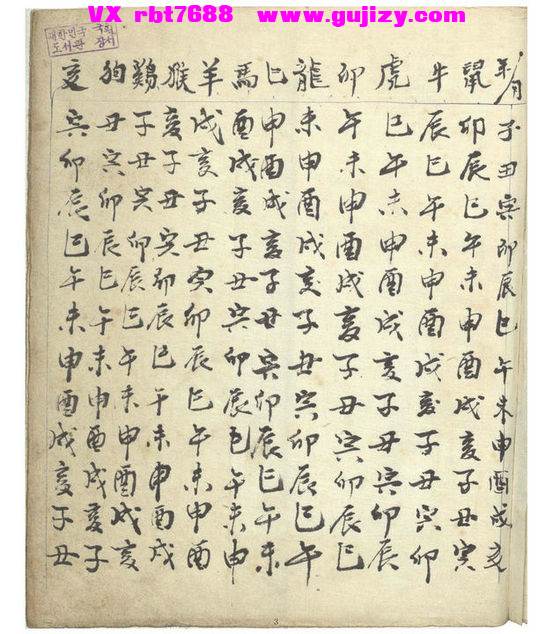 VX rbt7688 www.gujizy.com
대한민국 국회
도서관 장서
年月子丑寅卯辰巳午未申酉戌亥
鼠卯辰巳午未申酉戌亥子丑寅
牛辰巳午未申酉戌亥子丑寅卯
虎巳午未申酉戌亥子丑寅卯辰
卯午未申酉戌亥子丑寅卯辰巳
龍未申酉戌亥子丑寅卯辰巳午
巳申酉戌亥子丑寅卯辰巳午未
馬酉戌亥子丑寅卯辰巳午未申
羊戌亥子丑寅卯辰巳午未申酉
猴亥子丑寅卯辰巳午未申酉戌
鷄子丑寅卯辰巳午未申酉戌亥
狗丑寅卯辰巳午未申酉戌亥子
亥寅卯辰巳午未申酉戌亥子丑
3